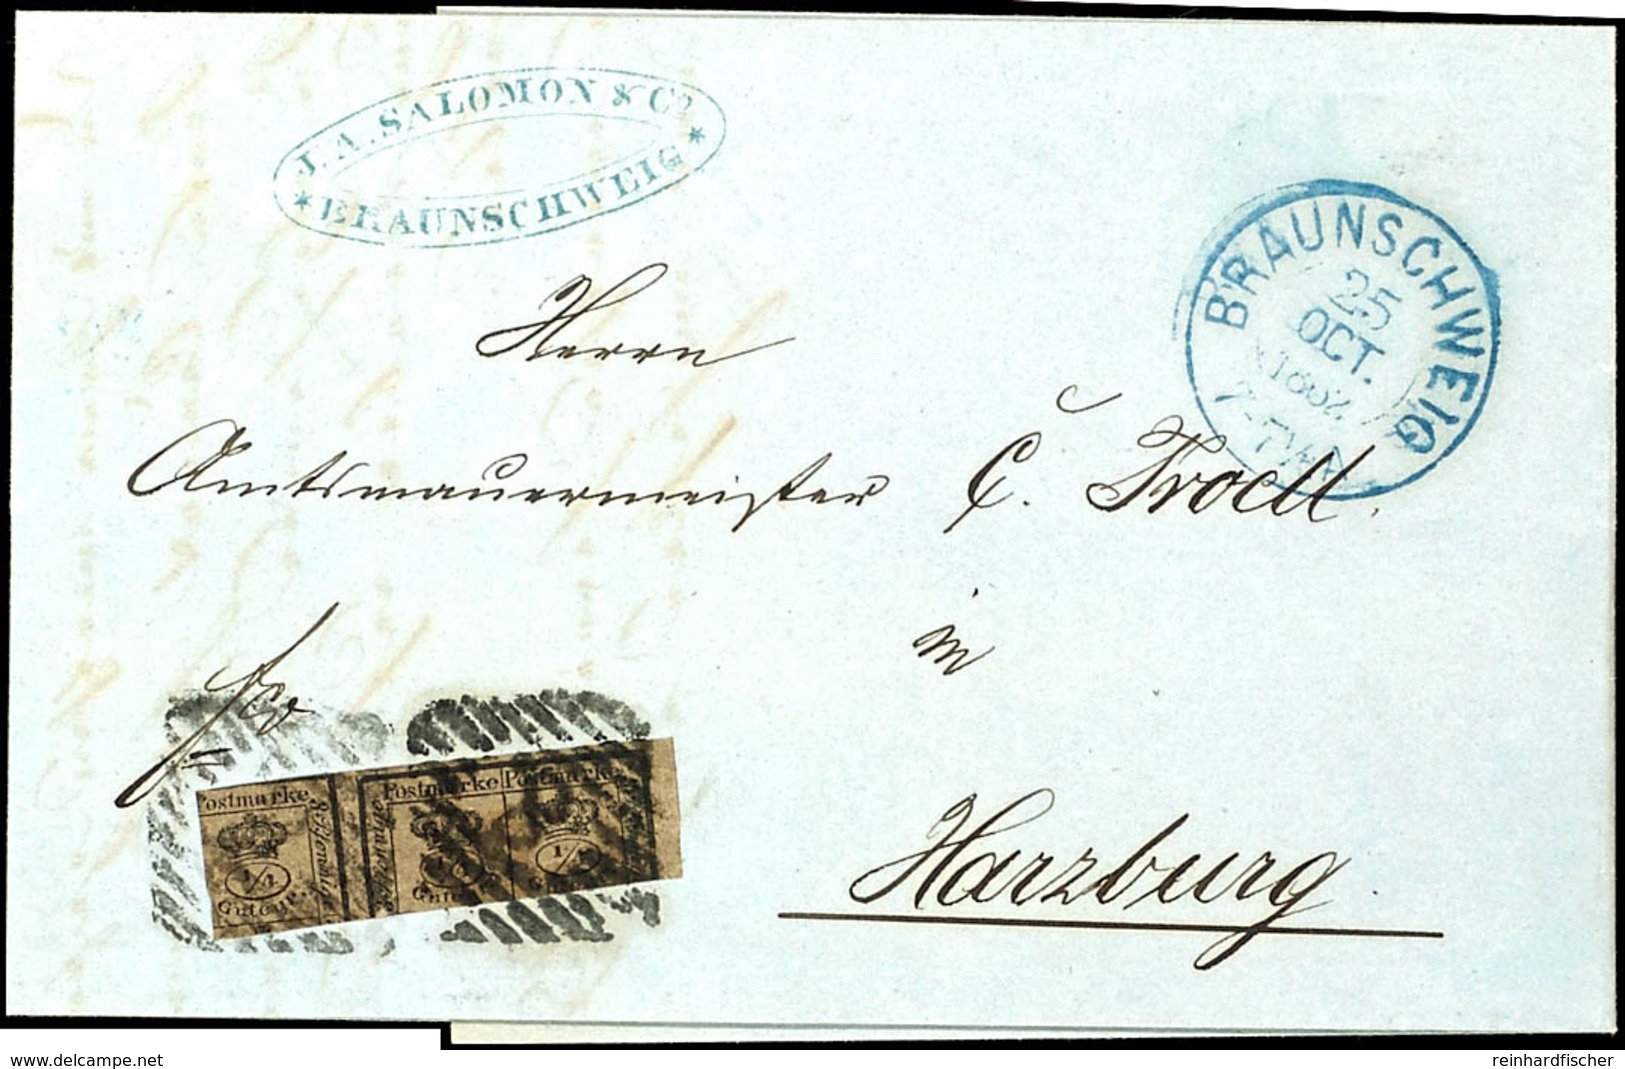 J. A. SALOMON & Co
* BRAUNSCHWEIG *
BRAUNSCHWEIG
25
OCT.
1862
7-7½
Herrn
Amtsmauermeister C. Troell.
in
fco
Harzburg
Postmarke Postmarke Postmarke
1/4 1/4 1/4
Gutegr. Gutegr.
www.delcampe.net
reinhardfischer